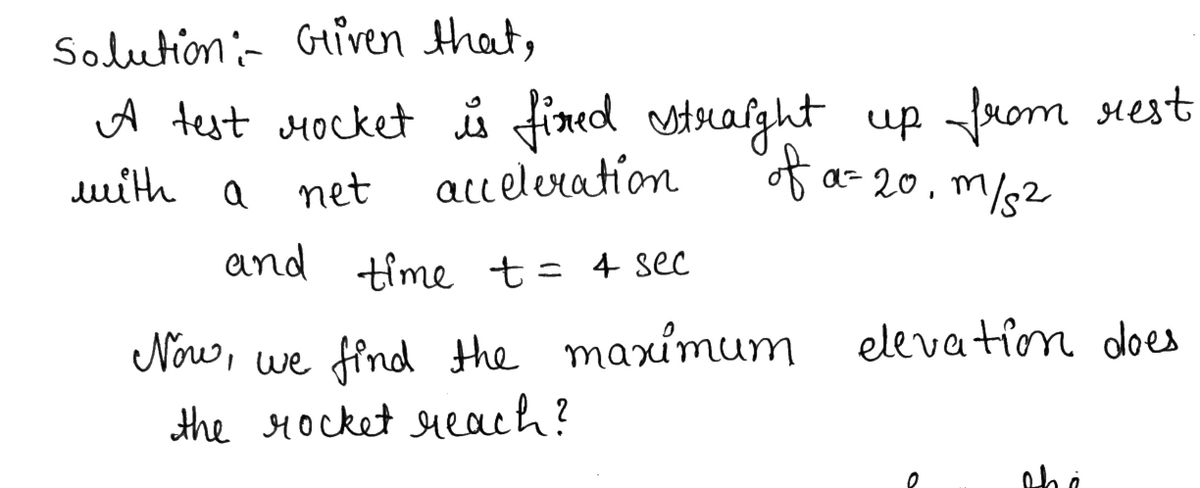 Solution:- Given that,
A test rocket is fired straight up from rest
with a net acceleration of a= 20. m/s2
and time t = 4 sec
Now, we find the maximum elevation does
the rocket reach?